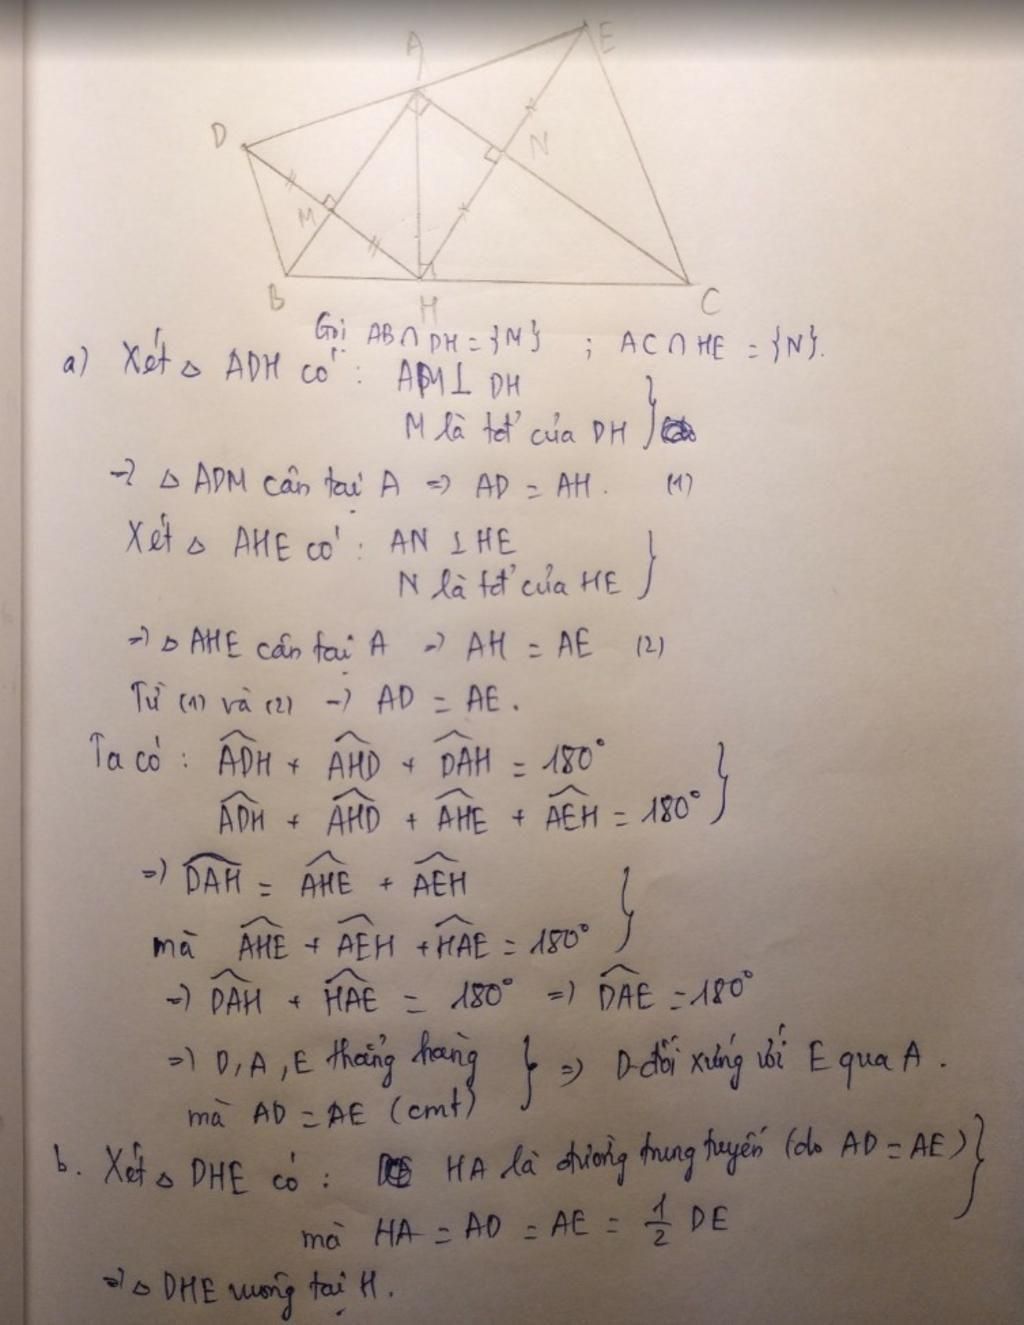 A
E
D
N
M
B
H
C
Gọi AB ∩ DH = {M} ; AC ∩ HE = {N}.
a) Xét △ ADH có : AM ⊥ DH
M là tđ của DH }
→ △ ADM cân tại A ⇒ AD = AH. (1)
Xét △ AHE có : AN ⊥ HE
N là tđ của HE }
→ △ AHE cân tại A → AH = AE (2)
Từ (1) và (2) → AD = AE.
Ta có : \widehat{ADH} + \widehat{AHD} + \widehat{DAH} = 180°
\widehat{ADH} + \widehat{AHD} + \widehat{AHE} + \widehat{AEH} = 180° }
⇒ \widehat{DAH} = \widehat{AHE} + \widehat{AEH}
mà \widehat{AHE} + \widehat{AEH} + \widehat{HAE} = 180° }
⇒ \widehat{DAH} + \widehat{HAE} = 180° ⇒ \widehat{DAE} = 180°
⇒ D, A, E thẳng hàng } ⇒ D đối xứng với E qua A.
mà AD = AE (cmt)
b. Xét △ DHE có : HA là đường trung tuyến (do AD = AE) }
mà HA = AD = AE = 1/2 DE
⇒ △ DHE vuông tại H.